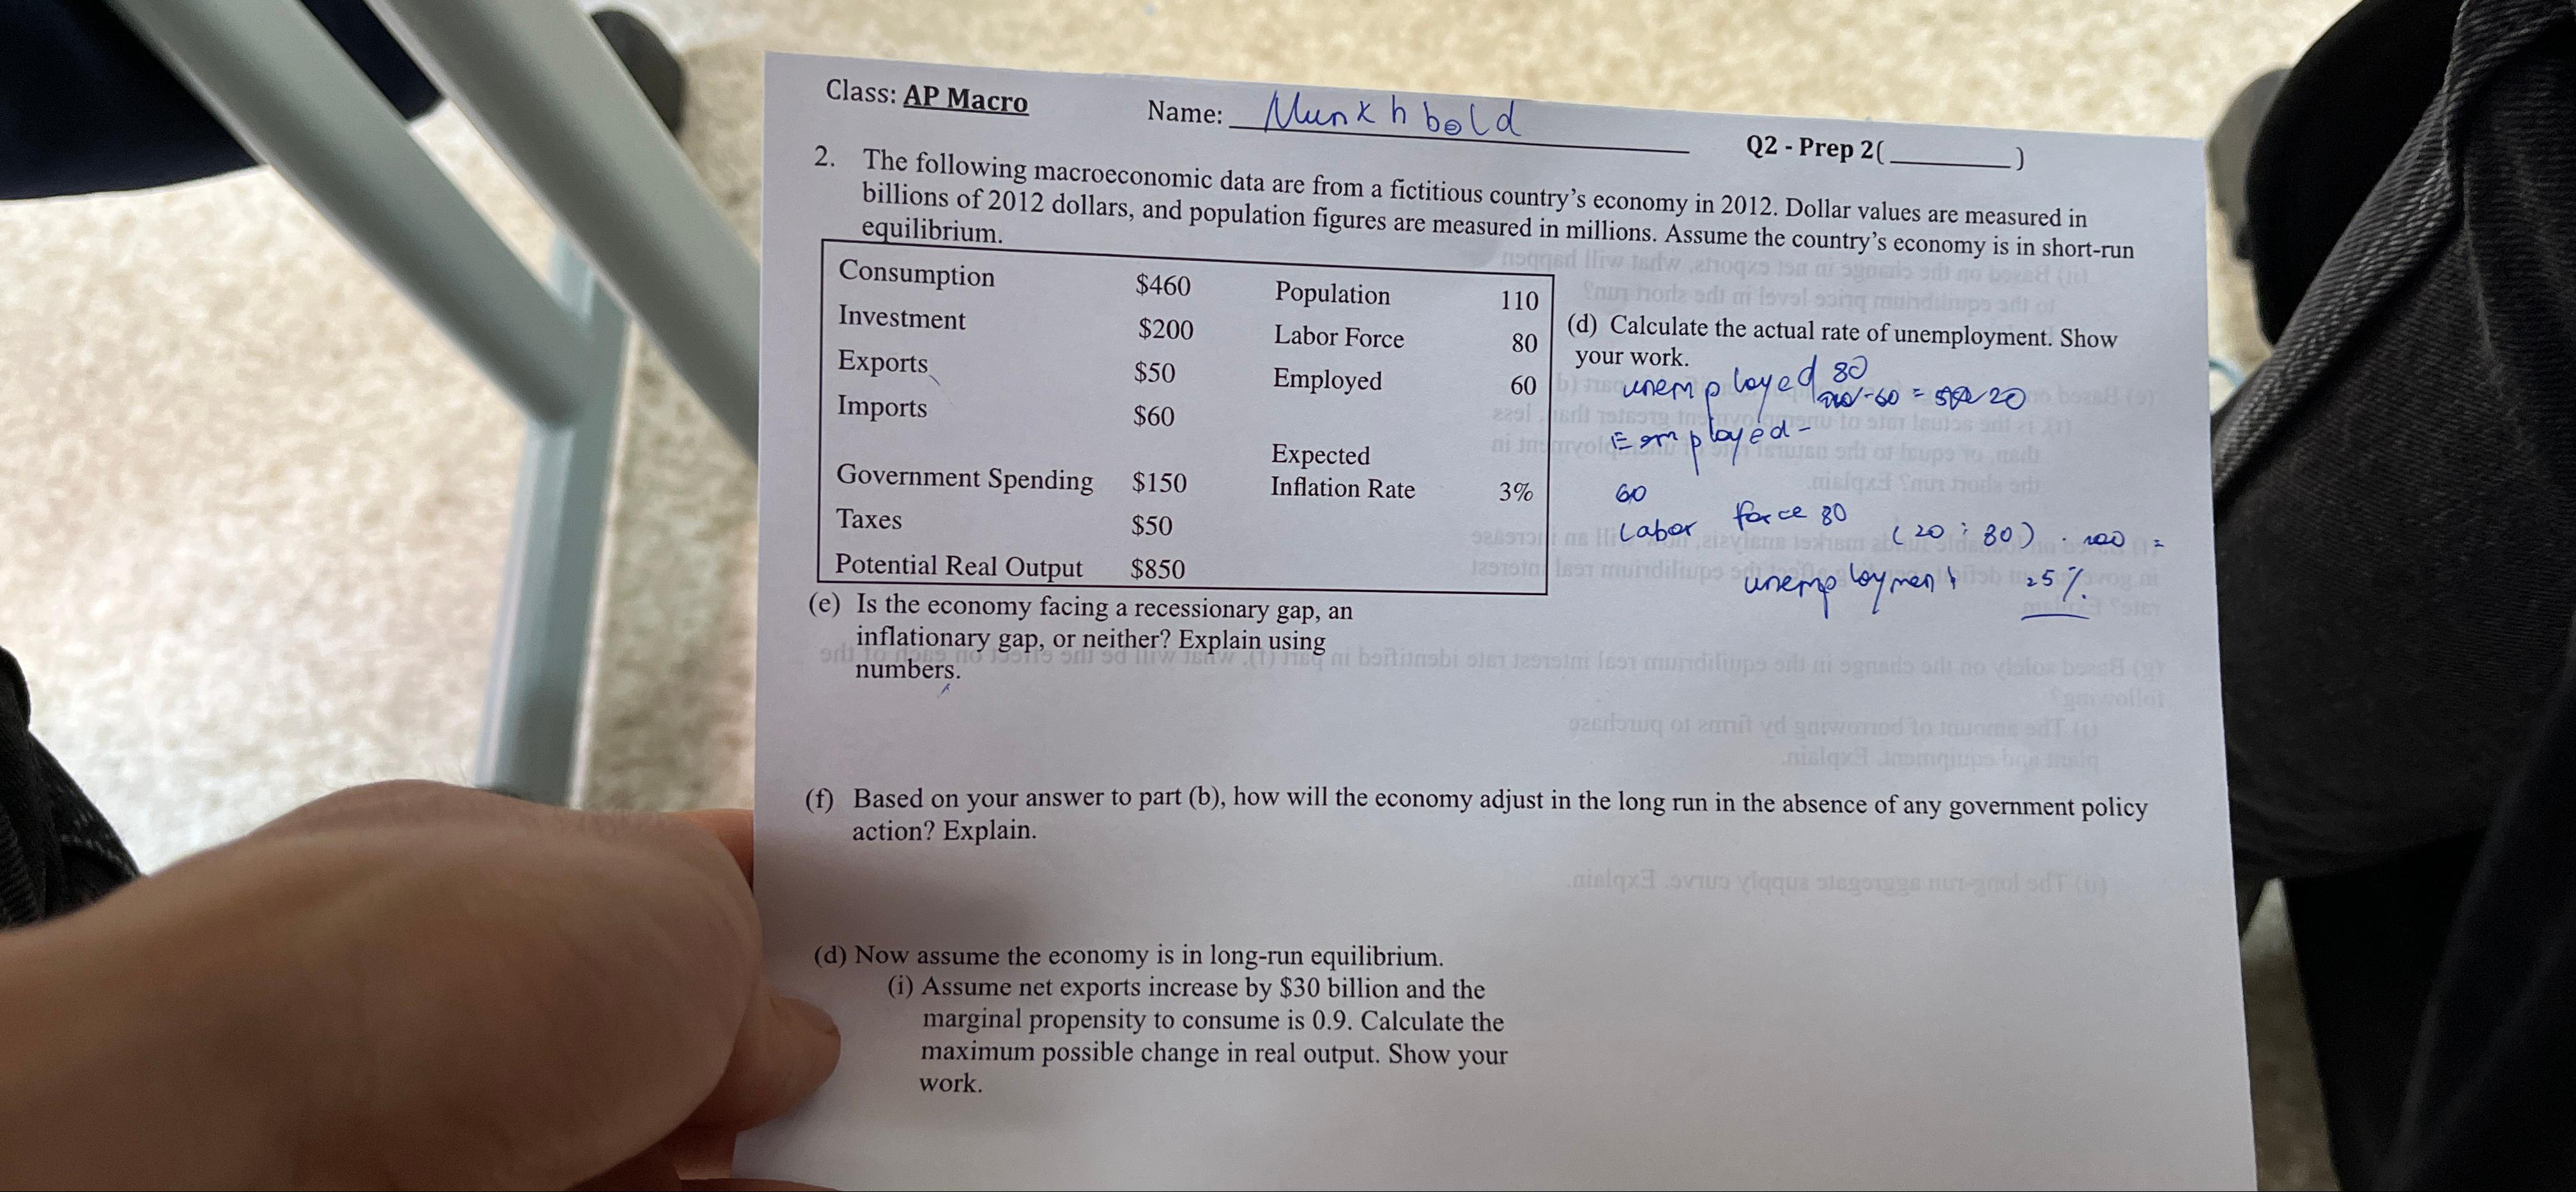 Class: AP Macro
Name: Munkhbold
Q2 - Prep 2(________)
2. The following macroeconomic data are from a fictitious country's economy in 2012. Dollar values are measured in
billions of 2012 dollars, and population figures are measured in millions. Assume the country's economy is in short-run
equilibrium.
Consumption $460 Population 110
Investment $200 Labor Force 80
Exports $50 Employed 60
Imports $60
Expected
Government Spending $150 Inflation Rate 3%
Taxes $50
Potential Real Output $850
(d) Calculate the actual rate of unemployment. Show
your work.
unemployed 80
-60 = 20
Employed -
60
Labor force 80
(20 : 80) . 100 =
unemployment 25%
(e) Is the economy facing a recessionary gap, an
inflationary gap, or neither? Explain using
numbers.
(f) Based on your answer to part (b), how will the economy adjust in the long run in the absence of any government policy
action? Explain.
(d) Now assume the economy is in long-run equilibrium.
(i) Assume net exports increase by $30 billion and the
marginal propensity to consume is 0.9. Calculate the
maximum possible change in real output. Show your
work.